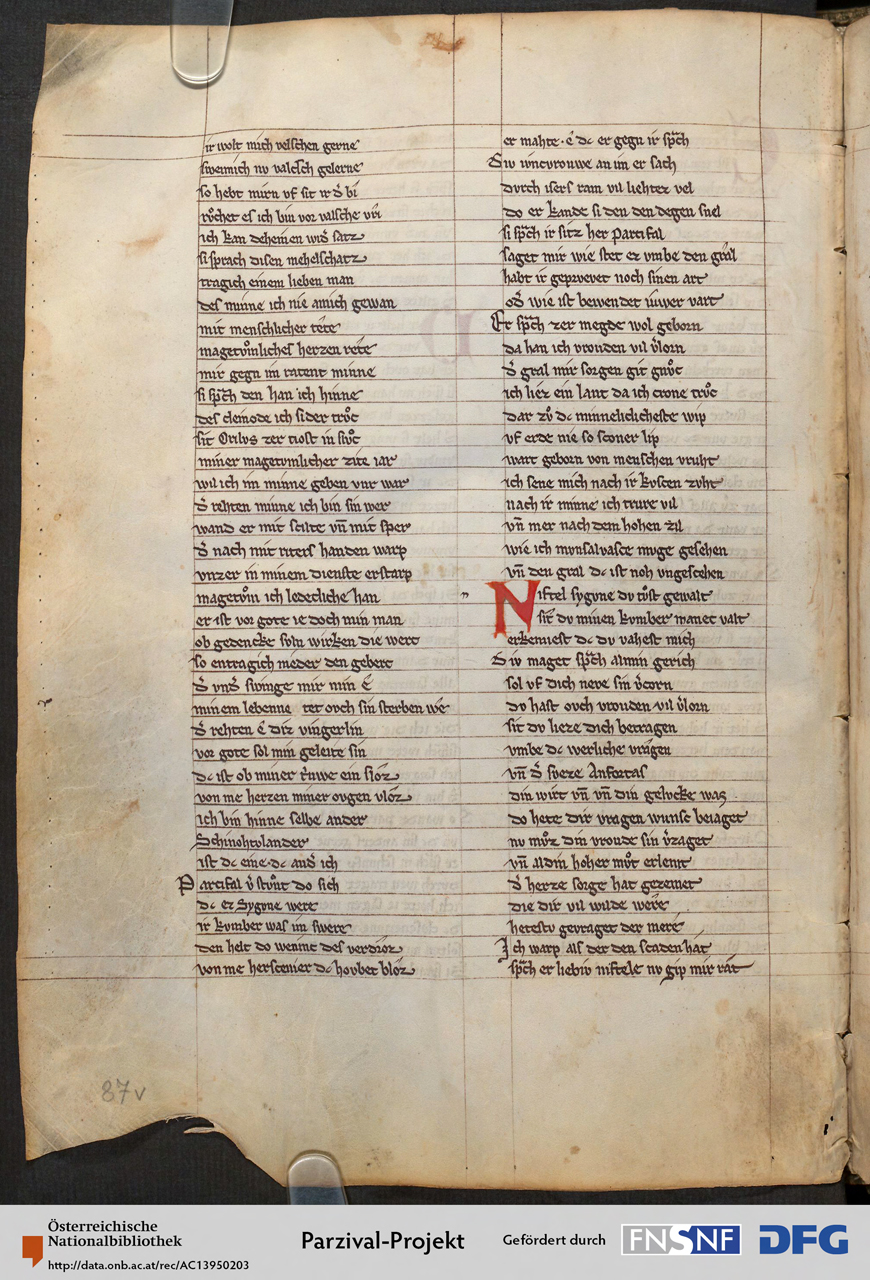 ir wolt mich velschen gerne
swenich nv valsch gelerne
so hebt mirn vf sit ir d͛ bi
rvͦchet es ich bin vor valsche vri
ich kan deheinen wid͛ satz
si sprach disen mehelschatz
tragich einem lieben man
des minne ich nie an mich gewan
mit menschlicher tete
magetvͦmliches herzen rete
mir gegn im ratent minne
si sp͛ch den han ich hinne
des cleinode ich sider trvͦc
sit Orilvs zer tiost in slvͦc
miner magetvmlicher zite iar
wil ich im minne geben vur war
d͛ rehten minne ich bin sin wer
wand er mit scilte vn̄ mit sper
d͛ nach mit riters handen warp
vnzer in minem dienste erstarp
magetvͦm ich ledecliche han
er ist vor gote ie doch min man
ob gedencke soln wirken die werc
so entragich nieder den geberc
d͛ vnd͛ swinge mir min e͛
minem lebenne tet ovch sin sterben we
d͛ rehten e͛ diz vingerlin
vor gote sol min geleite sin
dc ist ob miner triwe ein sloz
von me herzen miner ovgen vloz
ich bin hinne selbe ander
Schinohtvlander
ist dc eine · dc and͛ ich
Parcifal v͛stvͦnt do sich
dc ez Sygvne were
ir kvmber was im swere
den helt do weninc des verdroz
von me hersenier dc hovbet bloz
er mahte · e͛ dc er gegn ir sp͛ch
Div ivncvrouwe an im er sach
dvrch isers ram vil liehtez vel
do er kande si den den degen snel
si sp͛ch ir sitz her Parcifal
saget mir wie stet ez vmbe den gral
habt ir geprvevet noch sinen art
od͛ wie ist bewendet iuwer vart
Er sp͛ch zer megde wol geborn
da han ich vrouden vil v͛lorn
d͛ gral mir sorgen git gnvͦc
ich liez ein lant da ich crone trvͦc
dar zvͦ dc minneclicheste wip
vf erde nie so sconer lip
wart geborn von menschen vruht
ich sene mich nach ir kvscen zvht
nach ir minne ich trure vil
vn̄ mer nach dem hohen zil
wie ich mvnsalvasce mvge gesehen
vn̄ den gral dc ist noh vngescehen
Niftel sygvne dv tvͦst gewalt
sit dv minen kvmber manec valt
erkennest dc dv vahest mich
Div maget sp͛ch al min gerich
sol vf dich neve sin v͛corn
dv hast ovch vrouden vil v͛lorn
sit dv lieze dich betragen
vmbe dc werliche vragen
vn̄ d͛ sveze Anfortas
din wirt vn̄ vn̄ din gelvcke was
do hete dir vragen wunsc beiaget
nv mvͦz din vroude sin v͛zaget
vn̄ al din hoher mvͦt erlemt
d͛ herze sorge hat gezemet
die dir vil wilde were
hetestv gevraget der mere
Ich warp als der den scaden hat
sp͛ch er liebiv niftele nv gip mir rat
87v
Österreichische
Nationalbibliothek
http://data.onb.ac.at/rec/AC13950203
Parzival-Projekt
Gefördert durch
FNSNF
DFG